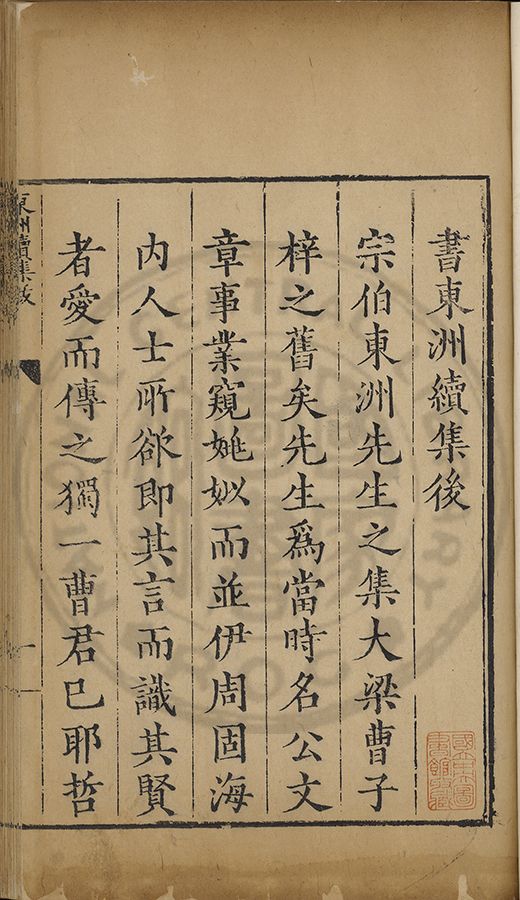 書東洲續集後
宗伯東洲先生之集大梁曹子
梓之舊矣先生爲當時名公文
章事業窺姚姒而並伊周固海
内人士所欲即其言而識其賢
者愛而傳之獨一曹君已耶哲
東洲續集
一